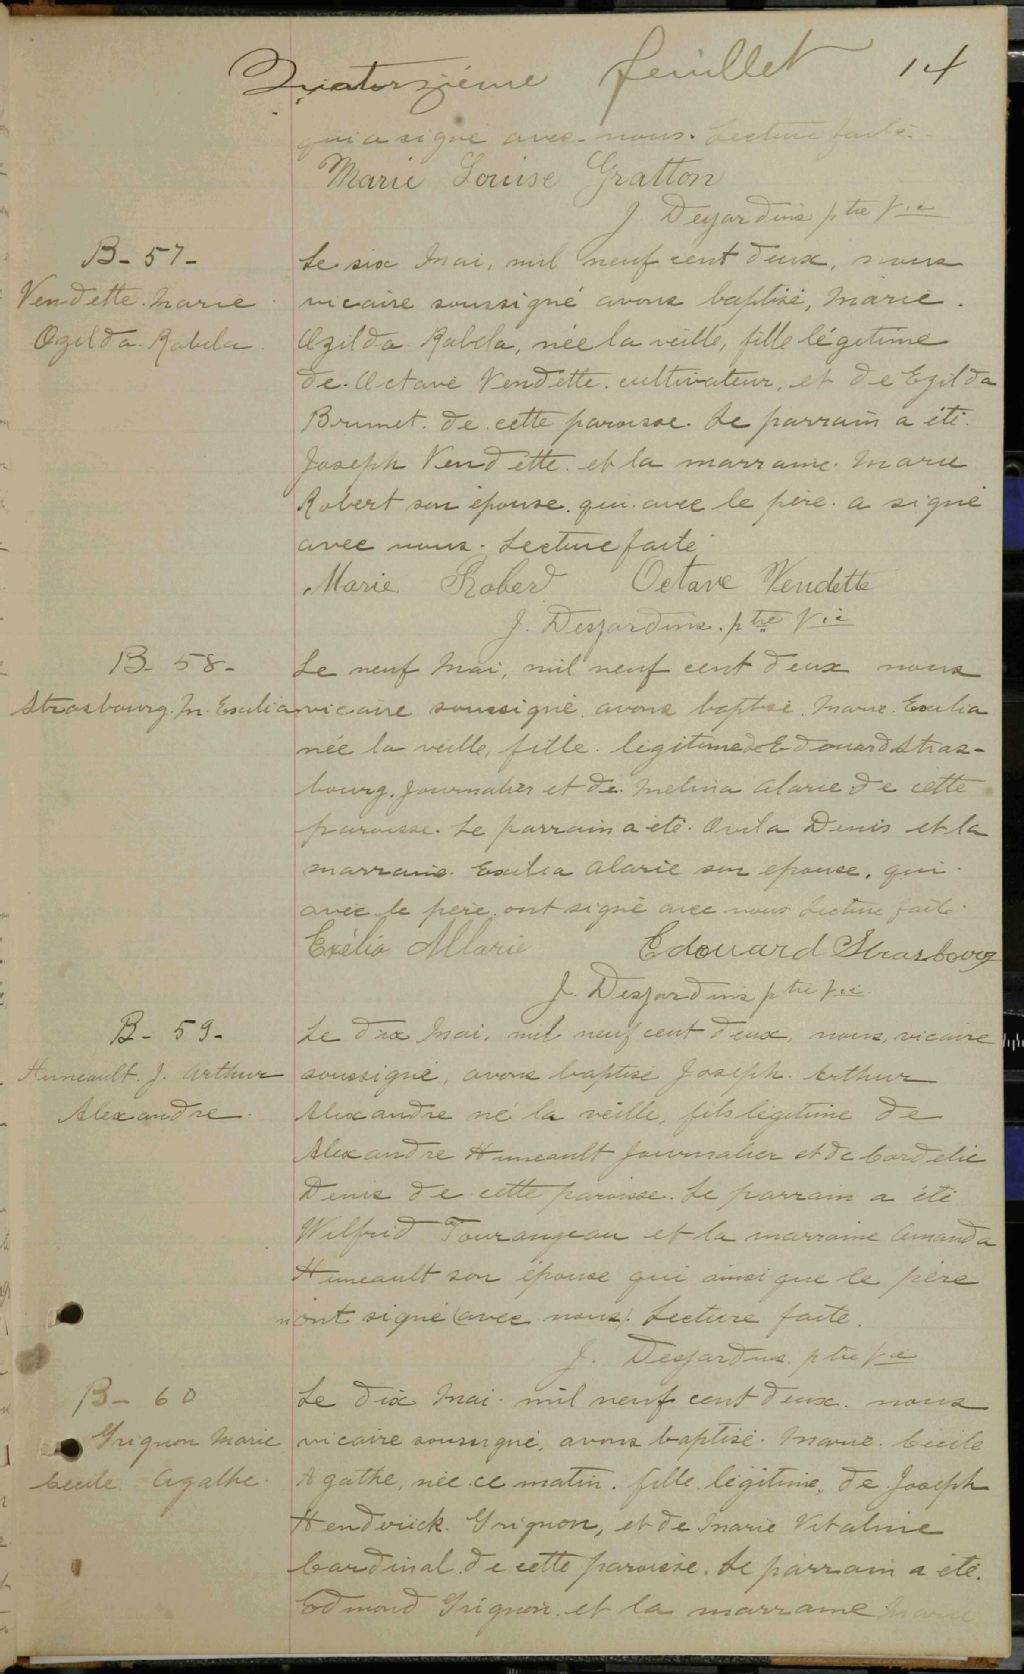 Quatorzième feuillet 14
qui a signé avec nous. Lecture faite.
Marie Louise Gratton
J. Desjardins ptre Vic
B - 57 -
Vendette Marie
Ozilda Rabela
Le six Mai, mil neuf cent deux, nous
vicaire soussigné avons baptisé, Marie
Ozilda Rabela, née la veille, fille légitime
de Octave Vendette cultivateur, et de Ezilda
Brunet de cette paroisse. Le parrain a été
Joseph Vendette et la marraine Marie
Robert son épouse qui avec le père a signé
avec nous. Lecture faite
Marie Roberd Octave Vendette
J. Desjardins ptre Vic
B - 58 -
Strasbourg M. Exelia
Le neuf Mai, mil neuf cent deux nous
vicaire soussigné avons baptisé Marie Exelia
née la veille, fille légitime de Edouard Stras-
bourg, Journalier et de Melina Alarie de cette
paroisse. Le parrain a été Ovila Denis et la
marraine Exelia Alarie son epouse, qui
avec le père ont signé avec nous Lecture faite
Exélia Allarie Edouard Strasbourg
J. Desjardins ptre Vic
B - 59 -
Huneault J. Arthur
Alexandre
Le dix Mai, mil neuf cent deux, nous, vicaire
soussigné, avons baptisé Joseph Arthur
Alexandre né la veille, fils légitime de
Alexandre Huneault Journalier et de Cordelie
Denis de cette paroisse. Le parrain a été
Wilfrid Tourangeau et la marraine Amanda
Huneault son épouse qui ainsi que le père
n'ont signé (avec nous) Lecture faite.
J. Desjardins ptre Vic
B - 60
Grignon Marie
Cecile Agathe
Le dix Mai mil neuf cent deux nous
vicaire soussigné, avons baptisé Marie Cécile
Agathe, née ce matin, fille légitime, de Joseph
Henderick Grignon, et de Marie Vitaline
Cardinal de cette paroisse. Le parrain a été
Edmond Grignon et la marraine Marie